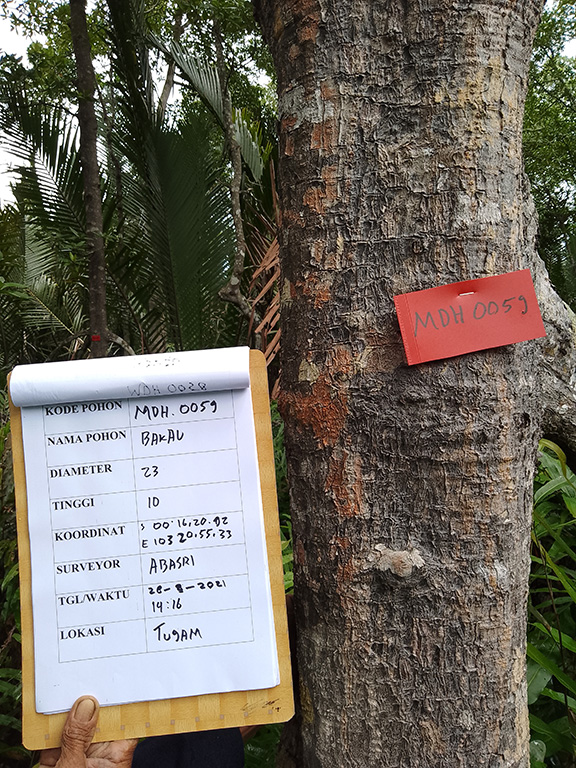 WDH 0028
KODE POHON MDH. 0059
NAMA POHON BAKAU
DIAMETER 23
TINGGI 10
KOORDINAT S 00°16.20.92
E 103 20.55.33
SURVEYOR ABASRI
TGL/WAKTU 28-8-2021
14:16
LOKASI TUGAM
MDH 0059